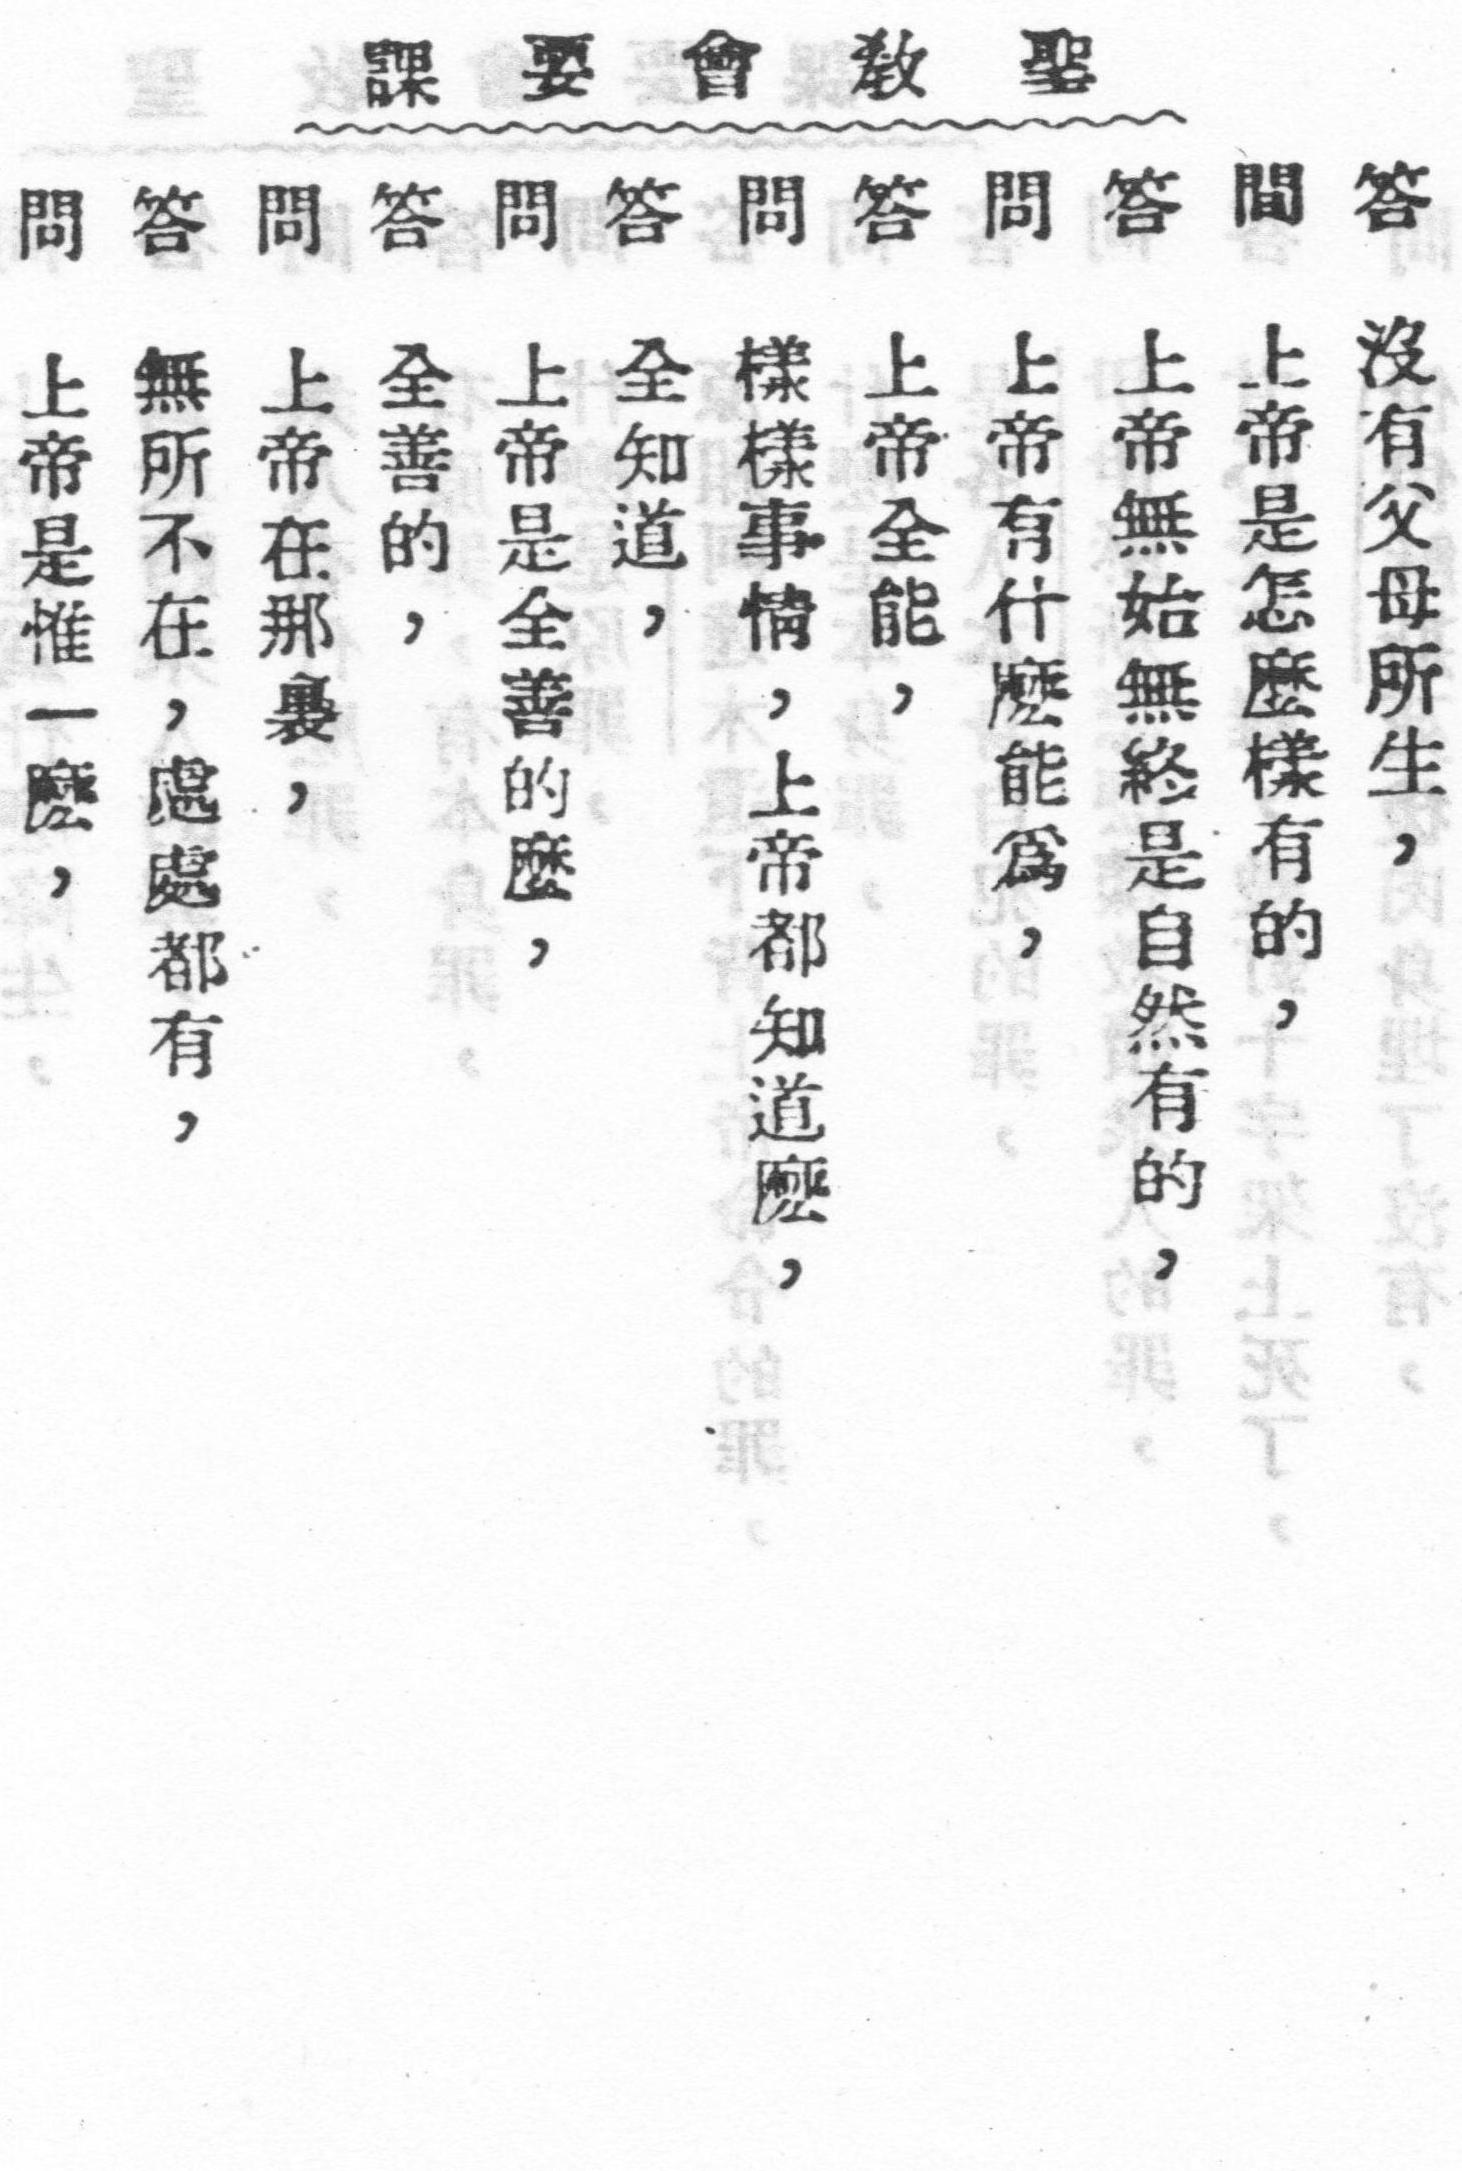 聖教會要課
答　沒有父母所生，
問　上帝是怎麽樣有的，
答　上帝無始無終是自然有的，
問　上帝有什麽能爲，
答　上帝全能，
問　樣樣事情，上帝都知道麽，
答　全知道，
問　上帝是全善的麽，
答　全善的，
問　上帝在那裏，
答　無所不在，處處都有，
問　上帝是惟一麽，